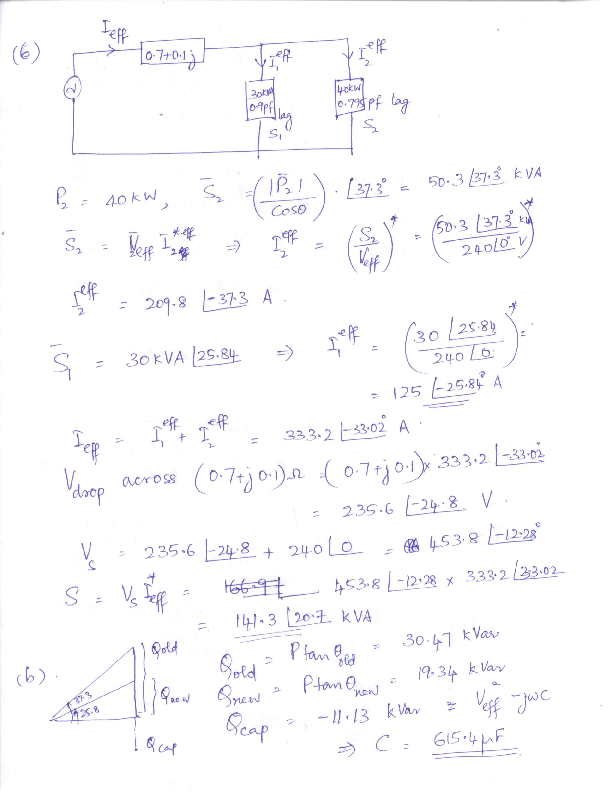 (6)
I_eff
0.7+0.1j
I_1^eff
I_2^eff
30kVA
0.9pf lag
S_1
40kW
0.795pf lag
S_2
P_2 = 40 KW, S̄_2 = (|P̄_2| / Cosθ) · ∠37.3° = 50.3 ∠37.3° KVA
S̄_2 = V̄_eff Ī_2^*eff ⇒ I_2^eff = (S_2 / V_eff)^* = (50.3 ∠37.3° / 240∠0° V)^*
I_2^eff = 209.8 ∠-37.3 A.
S̄_1 = 30 KVA ∠25.84 ⇒ I_1^eff = (30 ∠25.84 / 240 ∠0)^* =
= 125 ∠-25.84° A
I_eff = I_1^eff + I_2^eff = 333.2 ∠-33.02° A.
V_drop across (0.7+j0.1)Ω = (0.7+j0.1) × 333.2 ∠-33.02
= 235.6 ∠-24.8 V.
V_s = 235.6 ∠-24.8 + 240∠0 = 453.8 ∠-12.28°
S = V_s I_eff^* = 453.8 ∠-12.28 × 333.2 ∠33.02
= 141.3 ∠20.7 KVA
(b).
37.3
25.8
Qold
Qnew
Qcap
Qold = P tan θ_old = 30.47 KVar
Qnew = P tan θ_new = 19.34 KVar
Qcap = -11.13 KVar = V_eff^2 -jωC
⇒ C = 615.4 μF